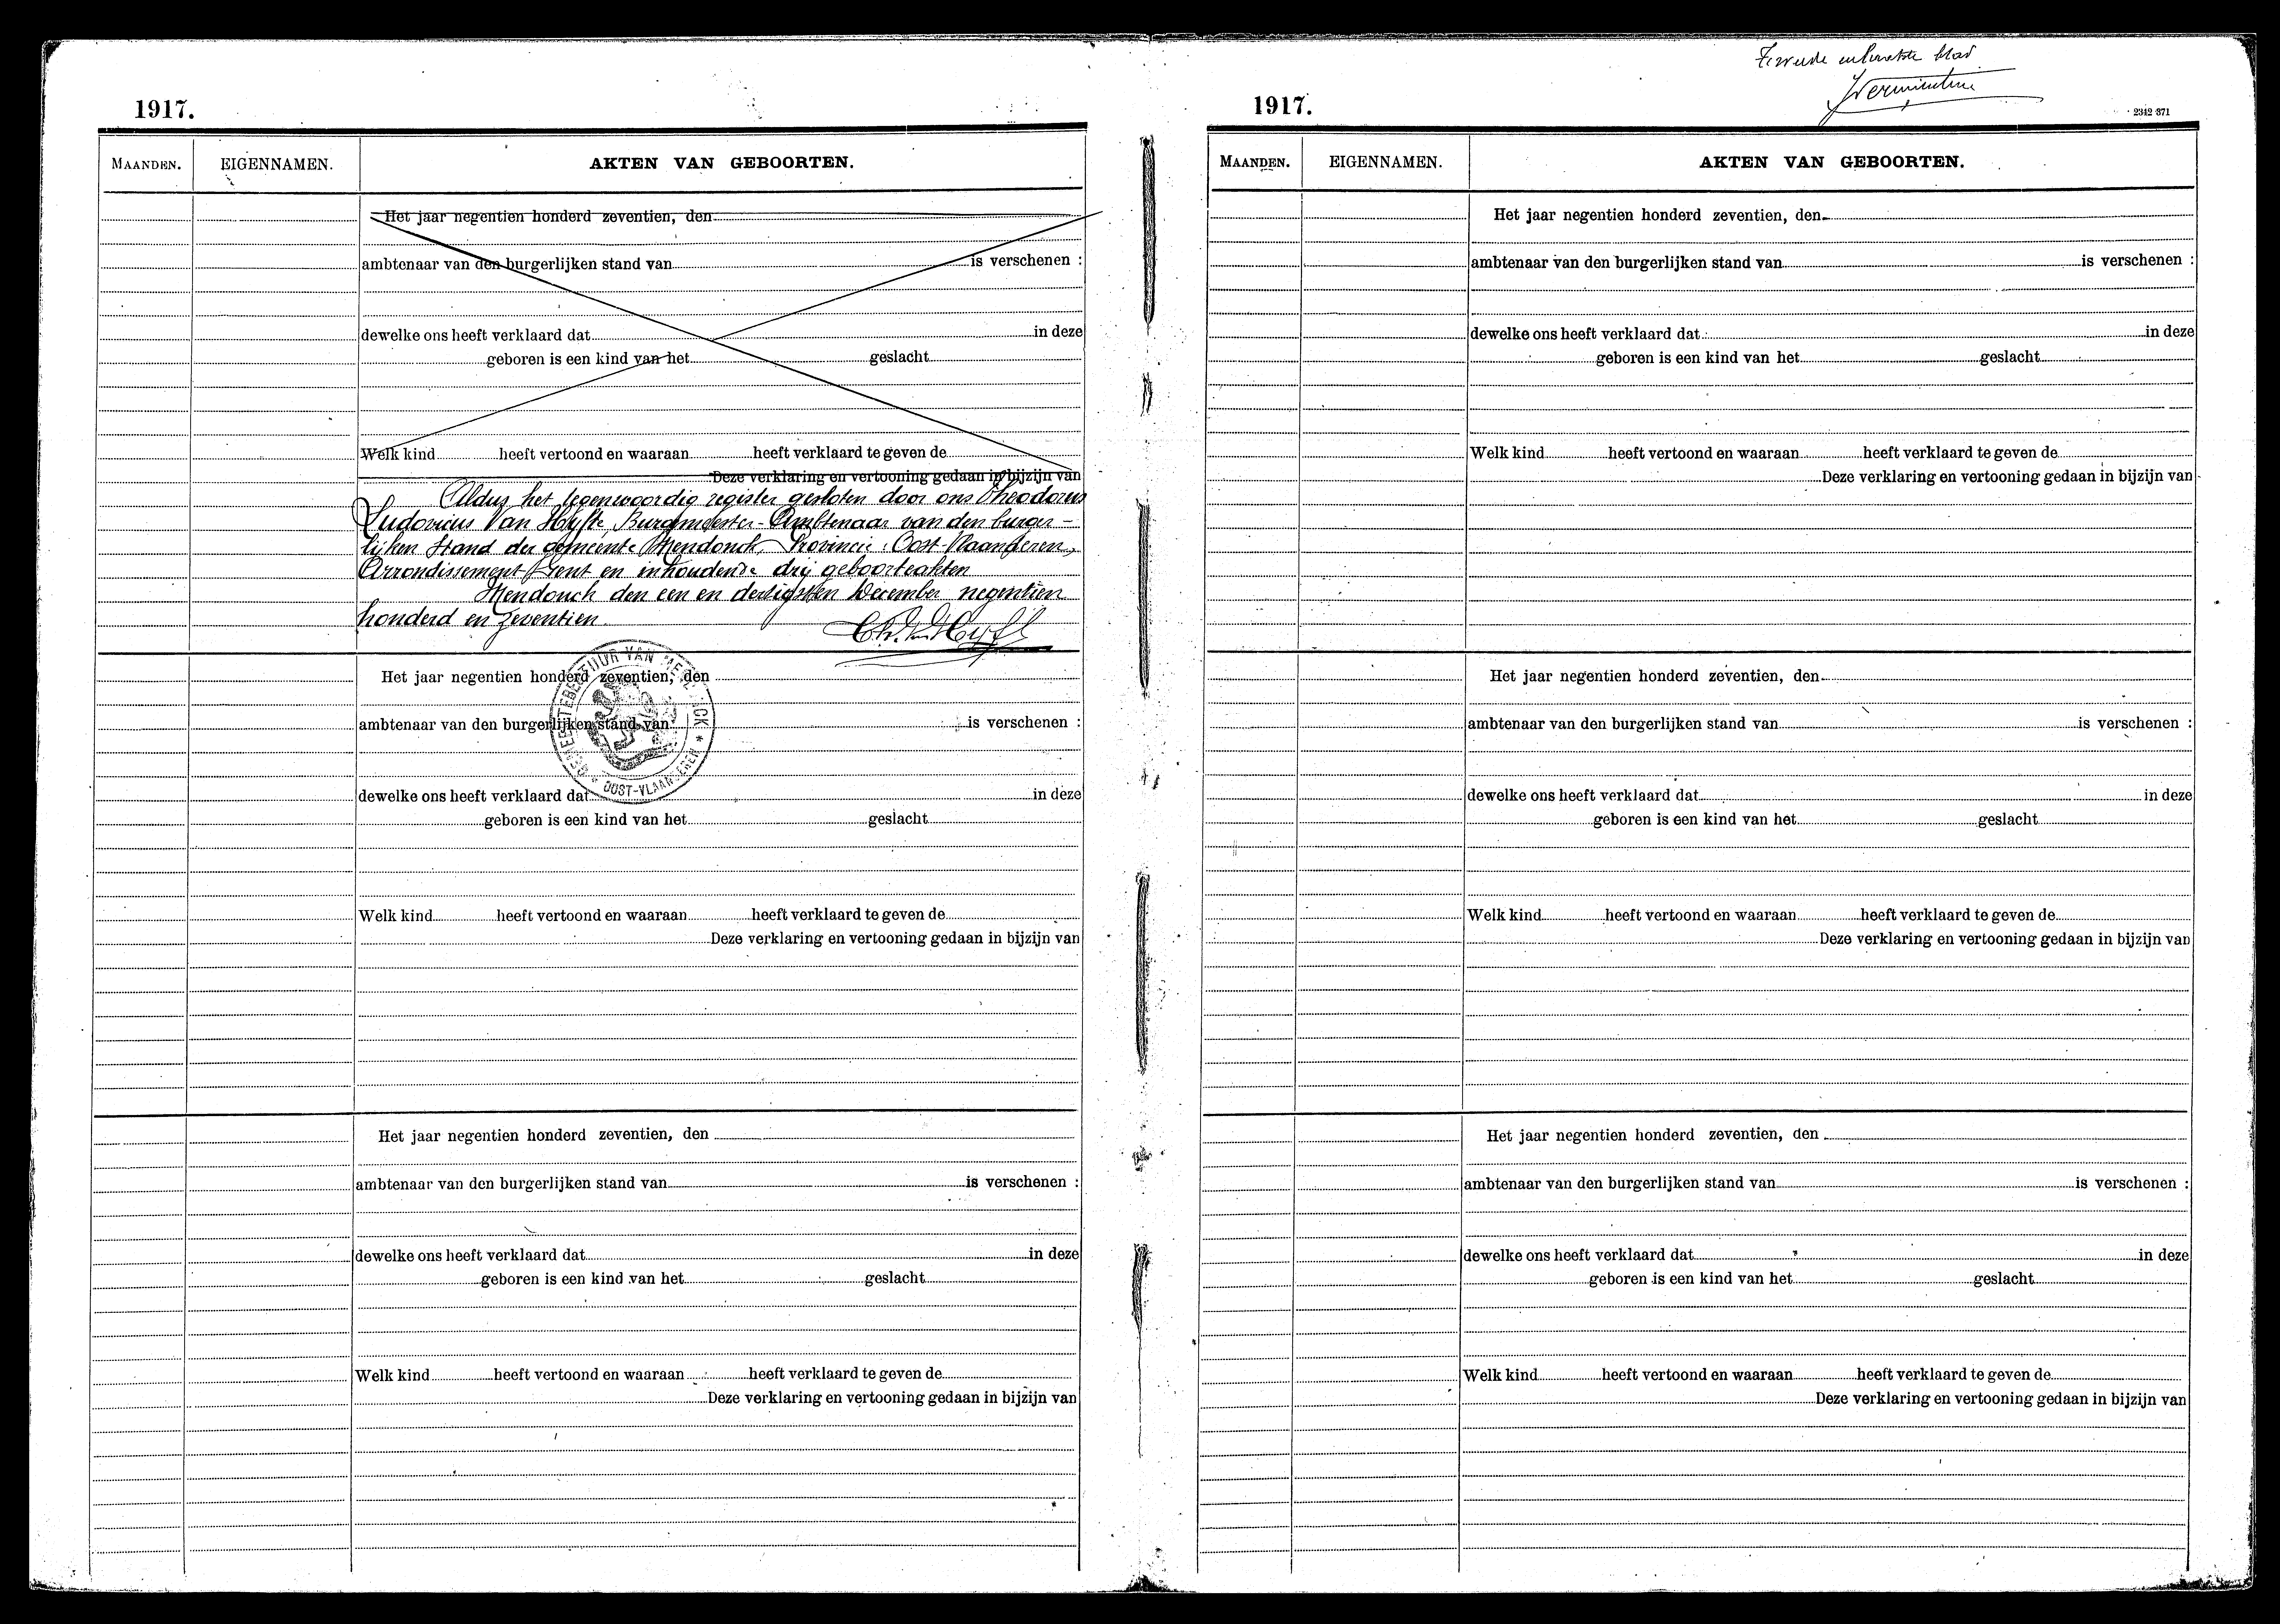 1917.
MAANDEN. EIGENNAMEN. AKTEN VAN GEBOORTEN.
Het jaar negentien honderd zeventien, den
ambtenaar van den burgerlijken stand van is verschenen :
dewelke ons heeft verklaard dat in deze
geboren is een kind van het geslacht
Welk kind heeft vertoond en waaraan heeft verklaard te geven de
Deze verklaring en vertooning gedaan in bijzijn van
Aldus het tegenwoordig register gesloten door ons Theodorus
Ludovicus Van Hyfte Burgmeester-Ambtenaar van den burger-
lijken Stand der gemeente Mendonck, Provincie Oost-Vlaanderen,
Arrondissement Gent en inhoudende drij geboorteakten
Mendonck den een en dertigsten December negentien
honderd en zeventien.
Th. Van Hyfte
GEMEENTEBESTUUR VAN MENDONCK * OOST-VLAANDEREN *
Het jaar negentien honderd zeventien, den
ambtenaar van den burgerlijken stand van is verschenen :
dewelke ons heeft verklaard dat in deze
geboren is een kind van het geslacht
Welk kind heeft vertoond en waaraan heeft verklaard te geven de
Deze verklaring en vertooning gedaan in bijzijn van
Het jaar negentien honderd zeventien, den
ambtenaar van den burgerlijken stand van is verschenen :
dewelke ons heeft verklaard dat in deze
geboren is een kind van het geslacht
Welk kind heeft vertoond en waaraan heeft verklaard te geven de
Deze verklaring en vertooning gedaan in bijzijn van
Tweede en laatste blad
1917.
2342 371
MAANDEN. EIGENNAMEN. AKTEN VAN GEBOORTEN.
Het jaar negentien honderd zeventien, den
ambtenaar van den burgerlijken stand van is verschenen :
dewelke ons heeft verklaard dat in deze
geboren is een kind van het geslacht
Welk kind heeft vertoond en waaraan heeft verklaard te geven de
Deze verklaring en vertooning gedaan in bijzijn van
Het jaar negentien honderd zeventien, den
ambtenaar van den burgerlijken stand van is verschenen :
dewelke ons heeft verklaard dat in deze
geboren is een kind van het geslacht
Welk kind heeft vertoond en waaraan heeft verklaard te geven de
Deze verklaring en vertooning gedaan in bijzijn van
Het jaar negentien honderd zeventien, den
ambtenaar van den burgerlijken stand van is verschenen :
dewelke ons heeft verklaard dat in deze
geboren is een kind van het geslacht
Welk kind heeft vertoond en waaraan heeft verklaard te geven de
Deze verklaring en vertooning gedaan in bijzijn van